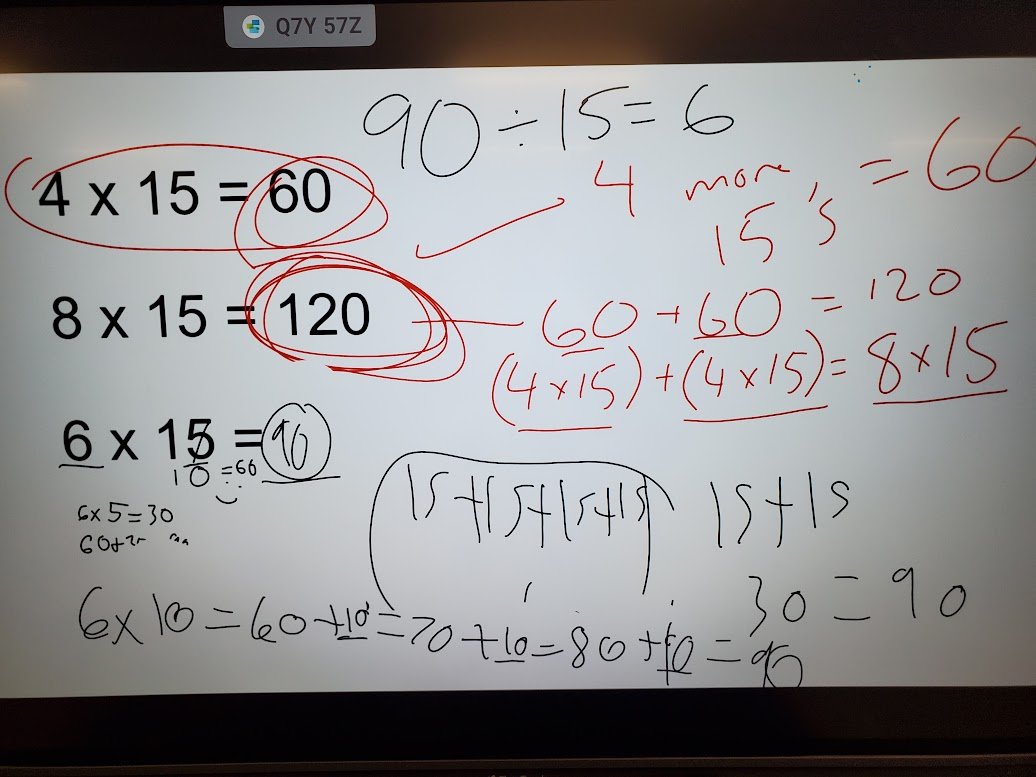 Q7Y 57Z
90 ÷ 15 = 6
4 x 15 = 60
4 more 15's = 60
8 x 15 = 120
60 + 60 = 120
(4 x 15) + (4 x 15) = 8 x 15
6 x 15 = 90
10 = 60
6 x 5 = 30
60 +
15 + 15 + 15 + 15
15 + 15
30 = 90
6 x 10 = 60 + 10 = 70 + 10 = 80 + 10 = 90